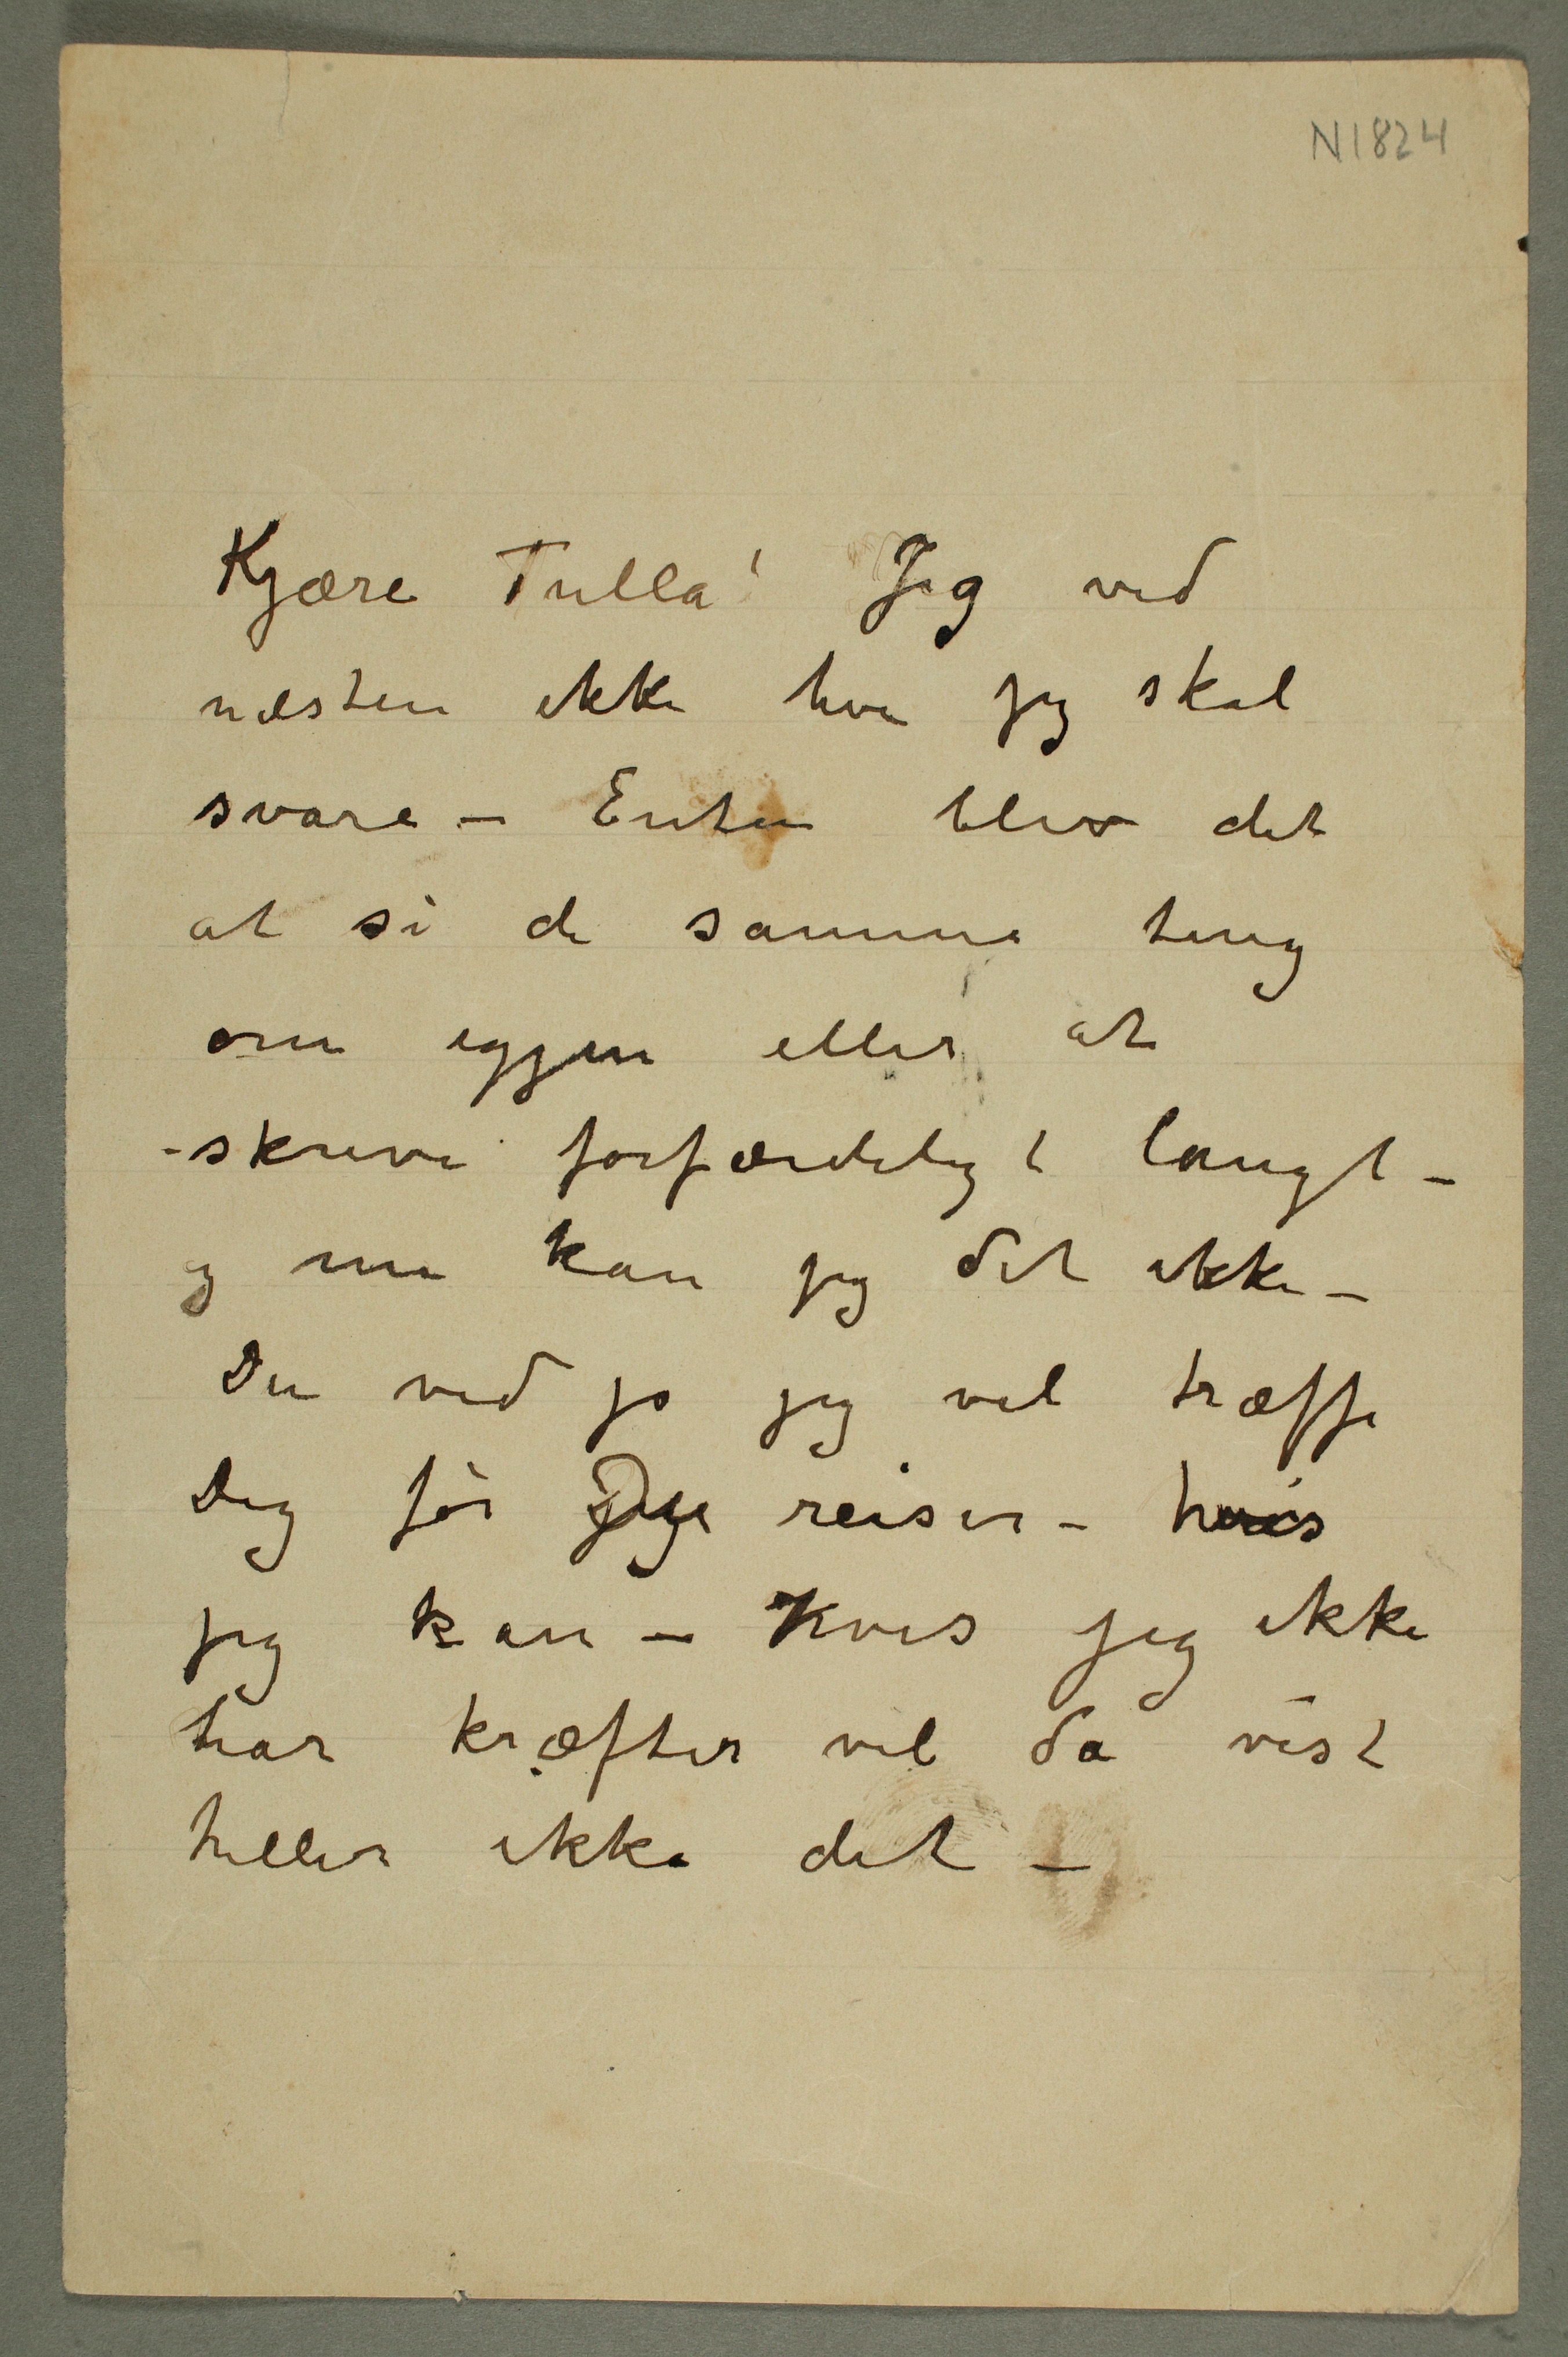 N1824
Kjære Tulla! Jeg ved
næsten ikke hva jeg skal
svare – Enten blev det
at si de samme ting
om igjen eller at
skrive forfærdeligt langt –
og nu kan jeg det ikke –
Du ved jo jeg vil træffe
Dig før reiser – hvis
jeg kan – Hvis jeg ikke
har kræfter vil da vist
heller ikke det –